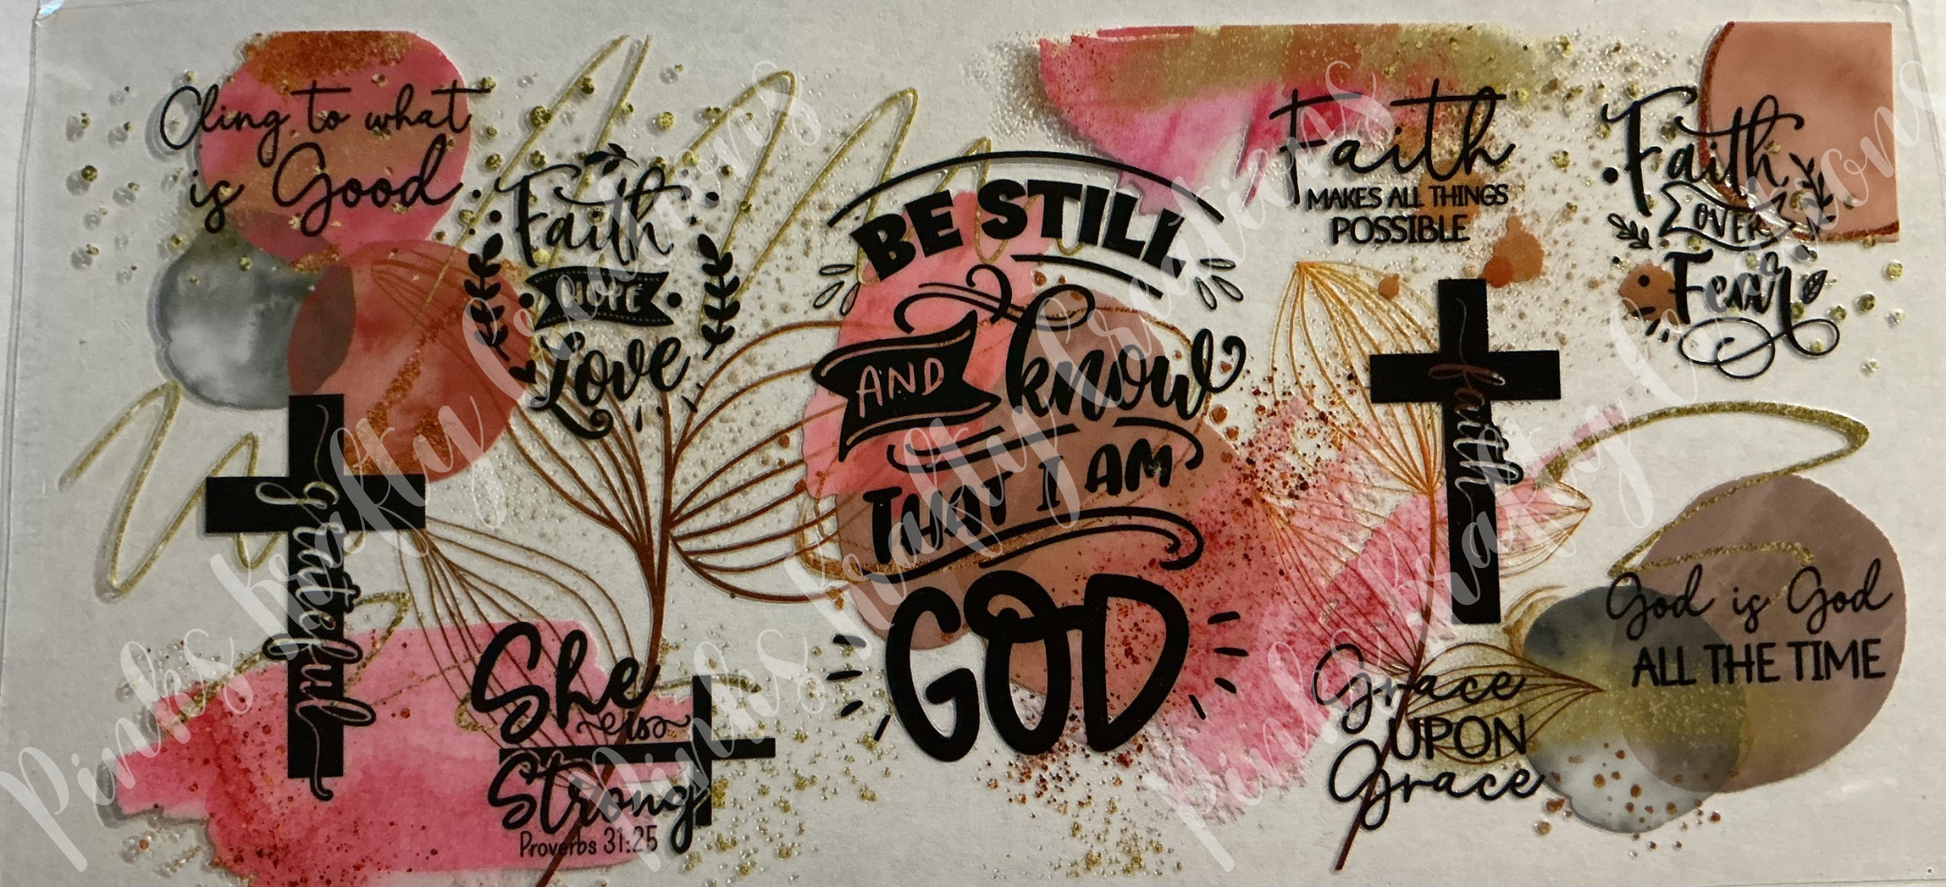 Cling to what
is Good
Faith
HOPE
Love
grateful
She
is
Strong
Proverbs 31:25
BE STILL
AND know
THAT I AM
GOD
Faith
MAKES ALL THINGS
POSSIBLE
Faith
OVER
Fear
faith
God is God
ALL THE TIME
Grace
UPON
Grace
Pinks Krafty Creations
Pinks Krafty Creations
Pinks Krafty Creations